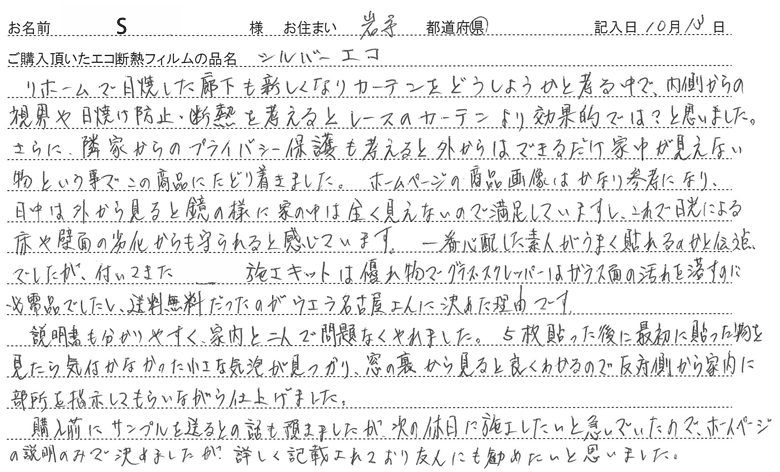 お名前 S 様 お住まい 岩手 都道府県 記入日 10月18日
ご購入頂いたエコ断熱フィルムの品名 シルバーエコ
リホームで日焼した廊下も新しくなりカーテンをどうしようかと考る中で、内側からの
視界や日焼け防止・断熱を考えるとレースのカーテンより効果的では?と思いました。
さらに、隣家からのプライバシー保護も考えると外からはできるだけ家中が見えない
物という事でこの商品にたどり着きました。 ホームページの商品画像はかなり参考になり、
日中は外から見ると鏡の様に家の中は全く見えないので満足していますし、これで日光による
床や壁面の劣化からも守られると感じています。 一番心配した素人がうまく貼れるのかと伝う点
でしたが、付いてきた 施工キットは優れ物でグラススクレッパーはガラス面の汚れを落すのに
必需品でしたし、送料無料だったのがウエラ名古屋さんに決めた理由です。
説明書も分かりやすく、家内と二人で問題なくやれました。 5枚貼った後に最初に貼った物を
見たら気付かなかった小さな気泡が見つかり、窓の裏から見ると良くわかるので反対側から家内に
部所を指示してもらいながら仕上げました。
購入前にサンプルを送るとの話も頂きましたが、次の休日に施工したいと急いでいたので、ホームページ
の説明のみで決めましたが、詳しく記載されており友人にも勧めたいと思いました。